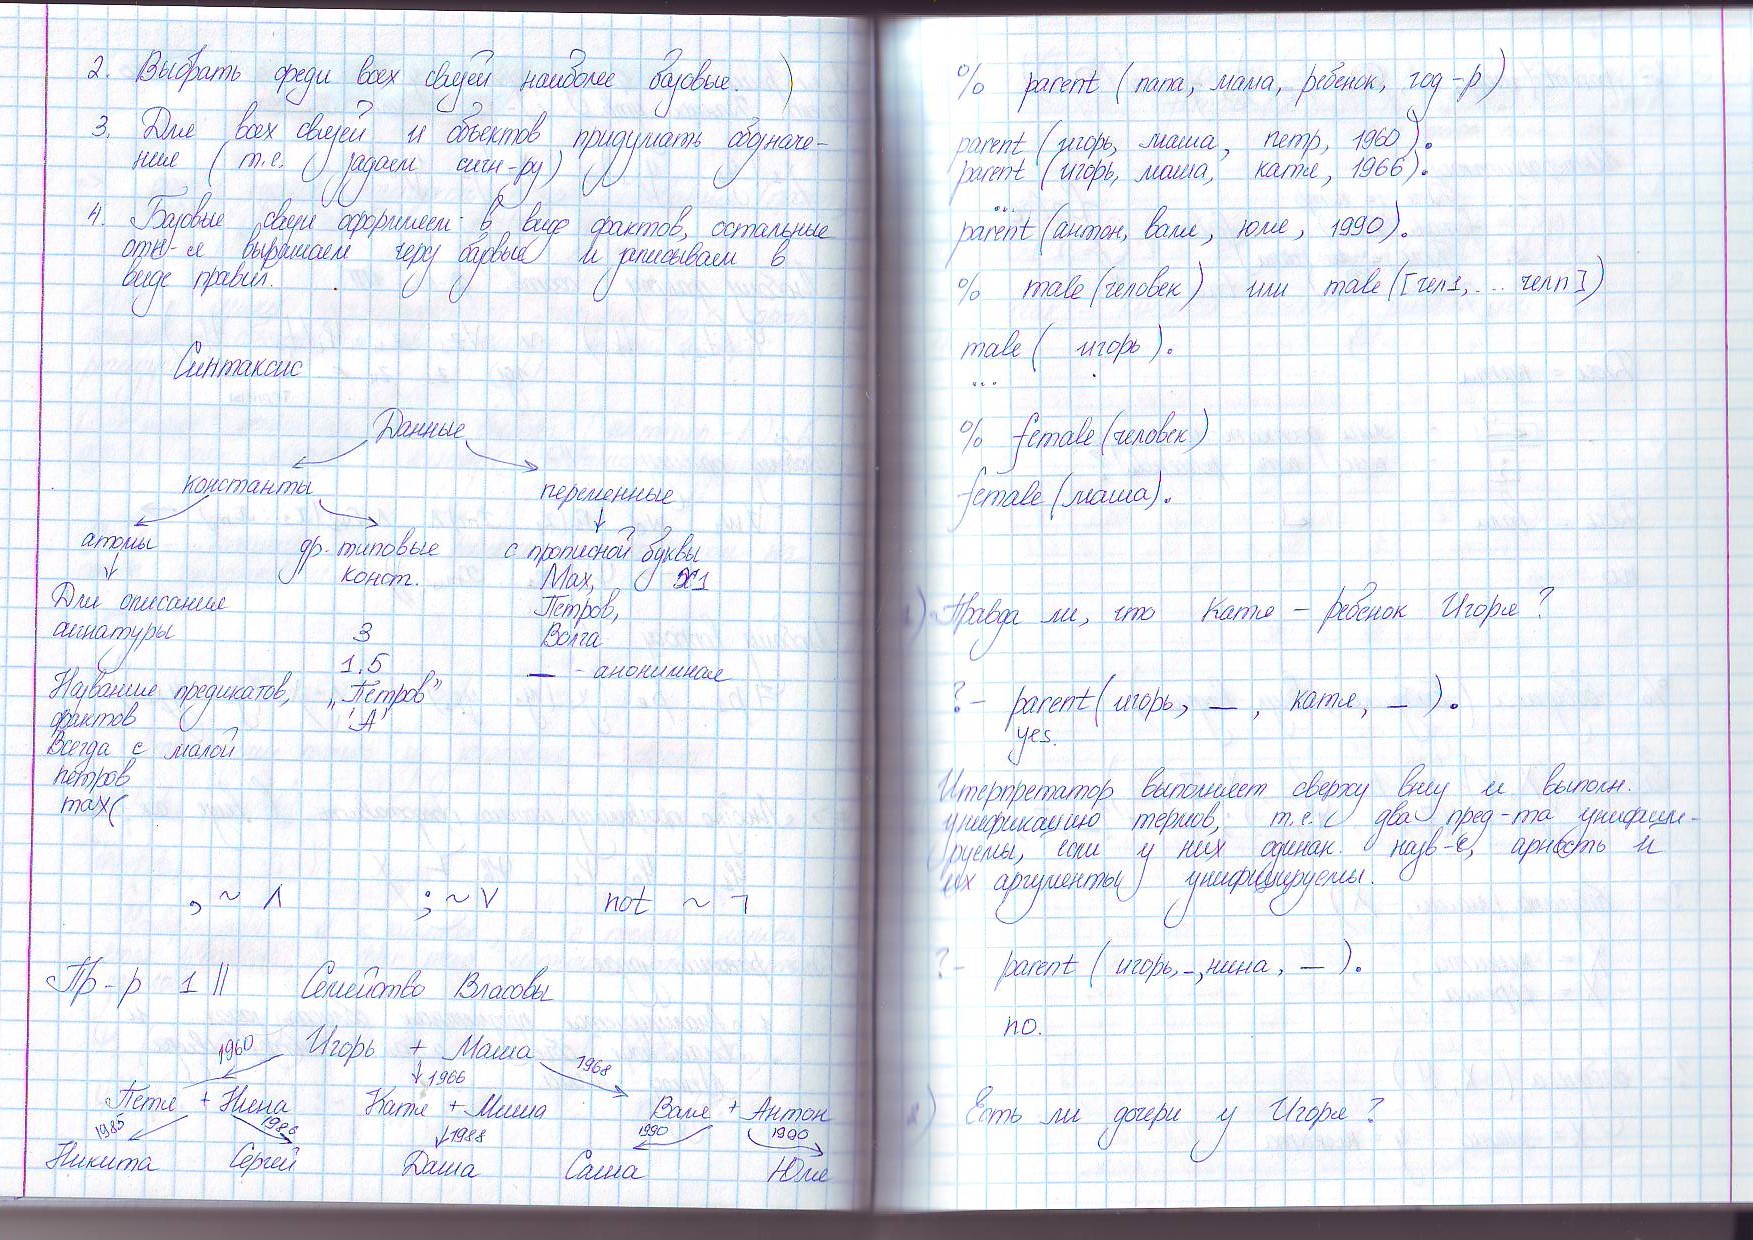 2. Выбрать среди всех связей наиболее базовые. )
3. Для всех связей и объектов придумать обозначе-
ние ( т.е. задаем сигн-ру)
4. Базовые связи оформляем в виде фактов, остальные
отн-я выражаем через базовые и записываем в
виде правил.
Синтаксис
Данные
константы
переменные
атомы
др. типовые
конст.
с прописной буквы
Max, X1
Петров,
Волга
_ - анонимная
Для описания
сигнатуры
3
1.5
„Петров"
'A'
Название предикатов,
фактов
Всегда с малой
петров
max(
, ~ ∧ ; ~ ∨ not ~ ¬
Пр-р 1 || Семейство Власовы
Игорь + Маша
1960 1966 1968
Петя + Нина Катя + Миша Валя + Антон
1985 1986 1988 1990 1990
Никита Сергей Даша Саша Юля
% parent (папа, мама, ребенок, год-р)
parent (игорь, маша, петр, 1960).
parent (игорь, маша, катя, 1966).
...
parent (антон, валя, юля, 1990).
% male (человек) или male ([чел1, ... челn])
male ( игорь ).
...
% female (человек)
female (маша).
1) Правда ли, что Катя – ребенок Игоря?
?- parent (игорь, _ , катя, _ ).
yes.
Итерпретатор выполняет сверху вниз и выполн.
унификацию термов, т.е. два пред-та унифици-
руемы, если у них одинак. назв-е, арность и
их аргументы унифицируемы.
?- parent ( игорь, _, нина, _ ).
no.
2) Есть ли дочери у Игоря?